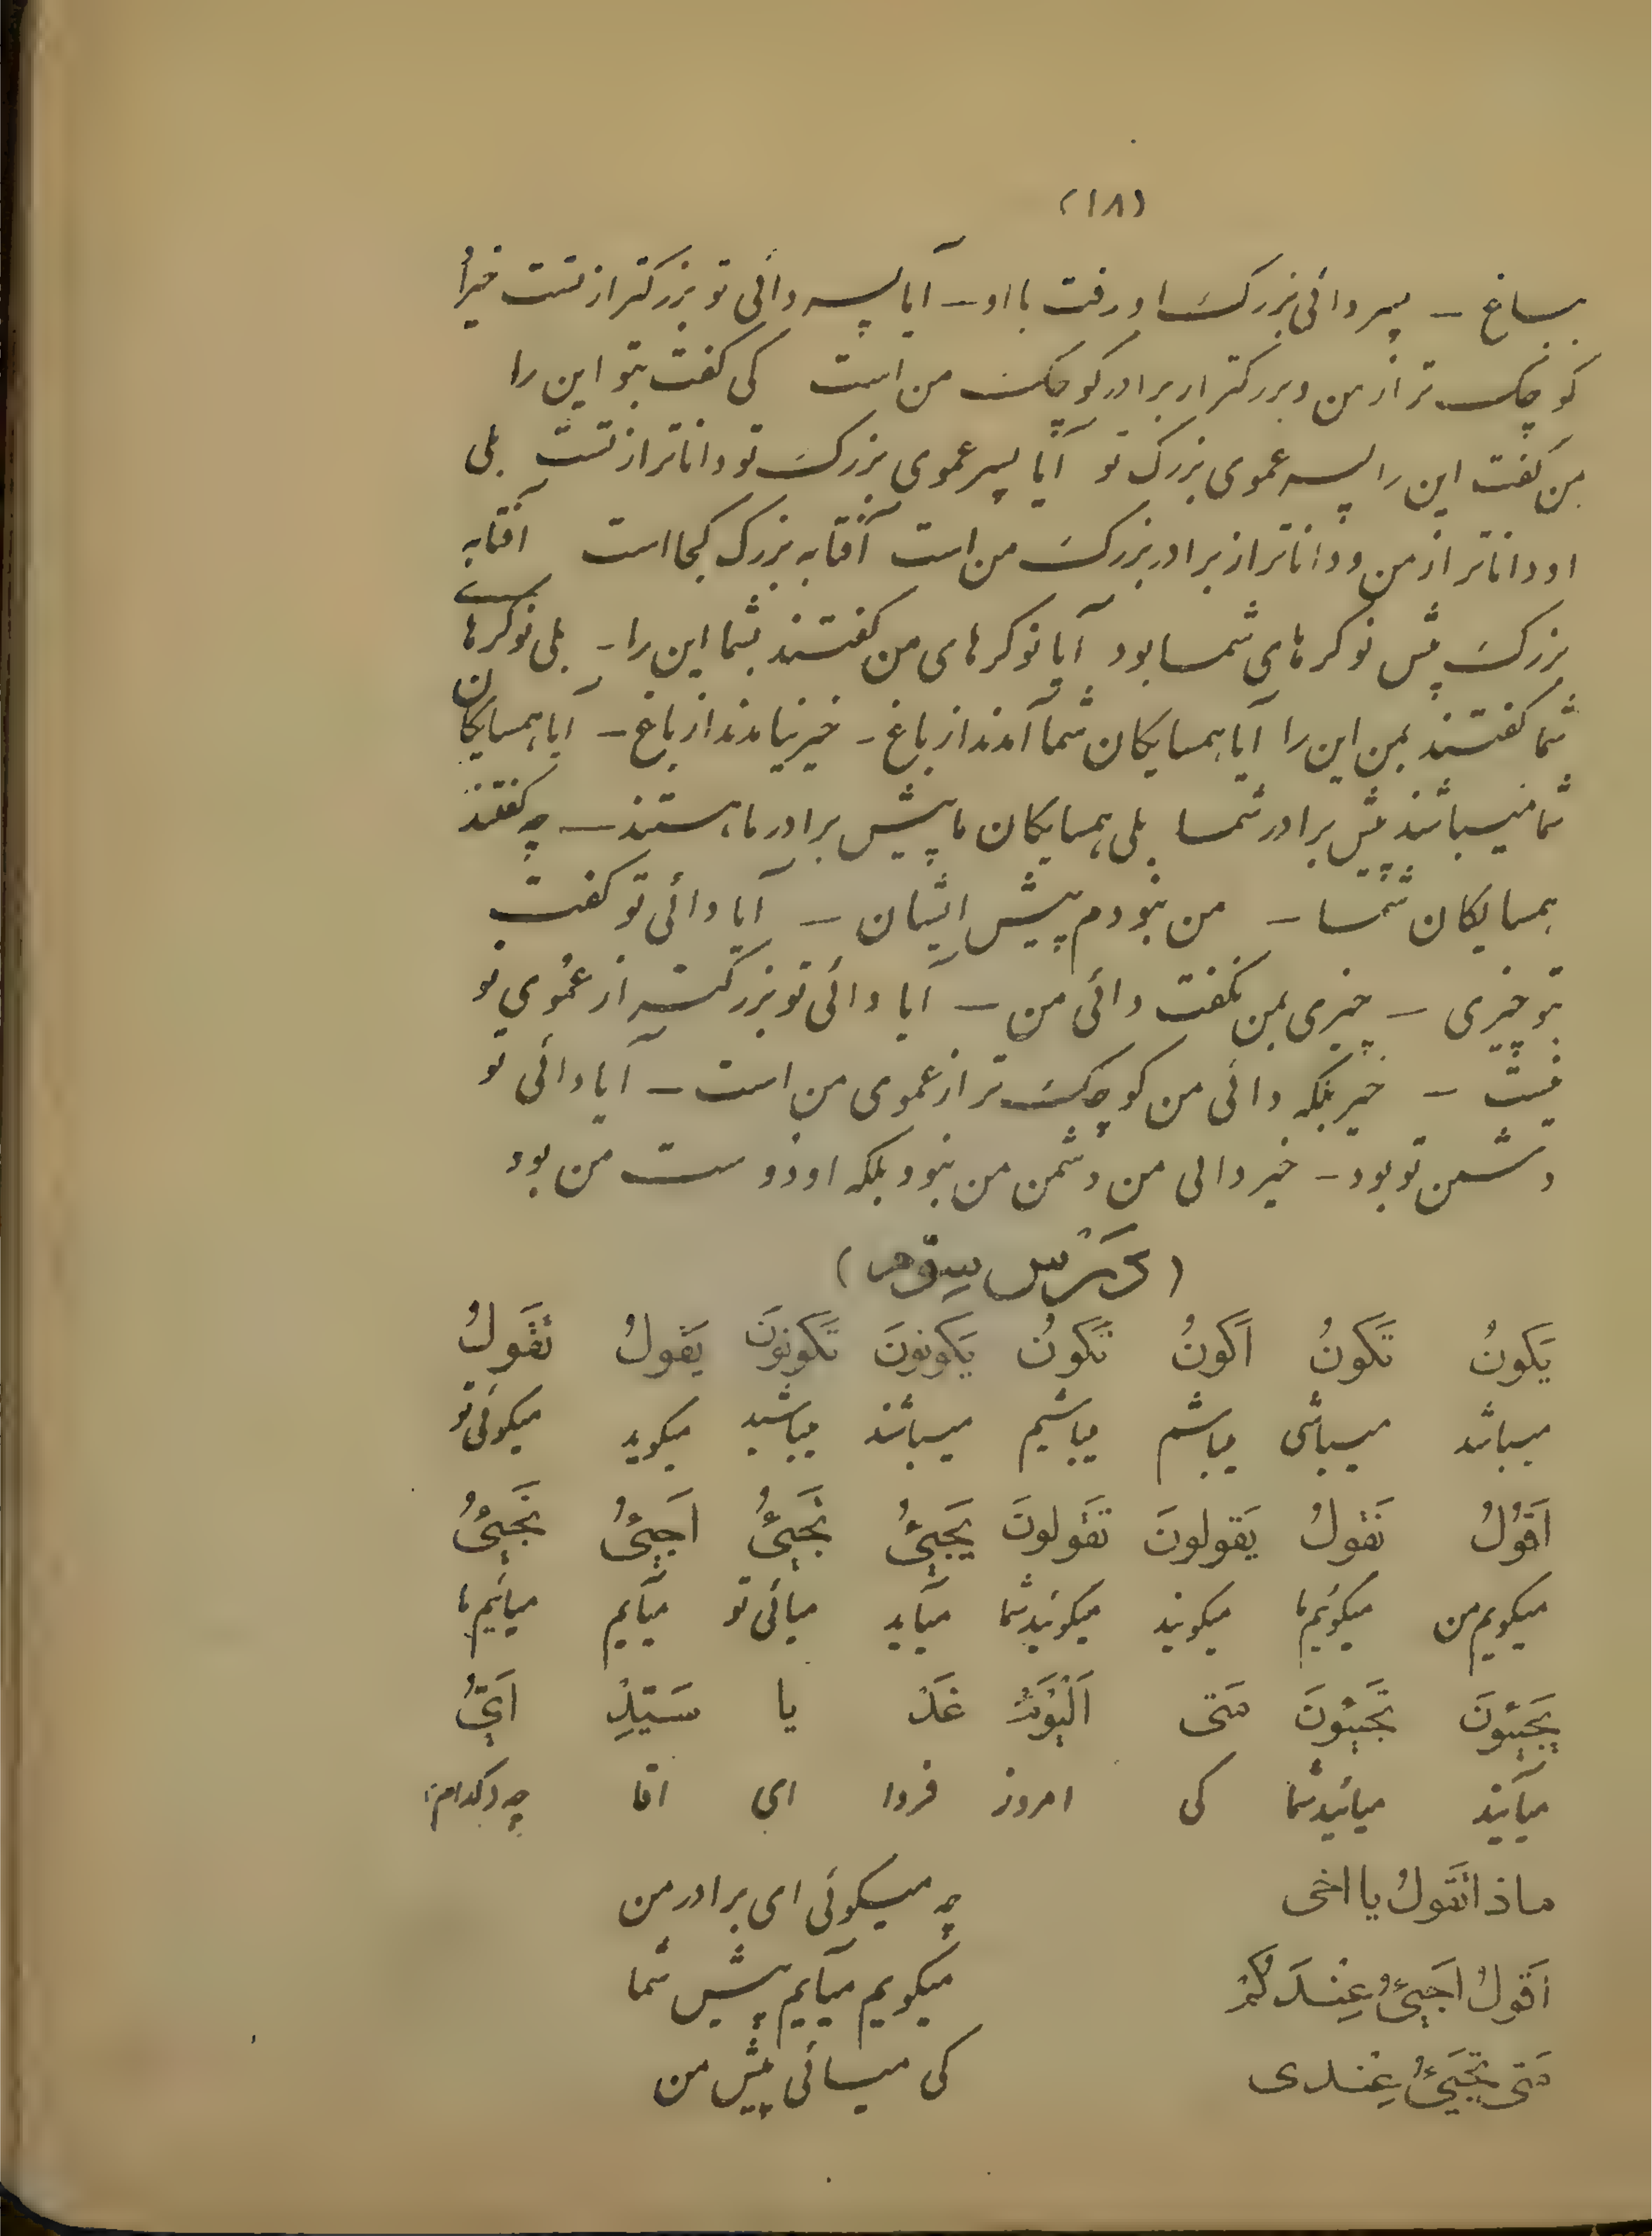 (۱۸)
بباغ – پسر دائی بزرک او رفت با او – آیا پسر دائی تو بزرکتر از تست خیر او
کوچک تر از من و بزرکتر از برادر کوچک من است کی کفت بتو این را
بمن کفت این را پسر عموی بزرک تو آیا پسر عموی بزرک تو داناتر از تست بلی
او داناتر از من و داناتر از برادر بزرک من است آفتابه بزرک کجا است آفتابه
بزرک پیش نوکرهای شما بود آیا نوکرهای من کفتند بشما این را – بلی نوکرهای
شما کفتند بمن این را آیا همسایکان شما آمدند از باغ – خیر نیامدند از باغ – آیا همسایکان
شما نمیباشند پیش برادر شما بلی همسایکان ما پیش برادر ما هستند – چه کفتند
همسایکان شما – من نبودم پیش ایشان – آیا دائی تو کفت
بتو چیزی – چیزی بمن نکفت دائی من – آیا دائی تو بزرکتر از عموی تو
نیست – خیر بلکه دائی من کوچک تر از عموی من است – آیا دائی تو
دشمن تو بود – خیر دائی من دشمن من نبود بلکه او دوست من بود
(دَرْس سِوّم)
یَکونُ تَکونُ اَکونُ نَکونُ یَکونونَ تَکونونَ یَقولُ تَقولُ
میباشد میباشی میباشم میباشیم میباشند میباشید میکوید میکوئی تو
اَقولُ نَقولُ یَقولونَ تَقولونَ یَجیئُ تَجیئُ اَجیئُ نَجیئُ
میکویم من میکوئیم ما میکویند میکوئید شما میآید میائی تو میآیم میائیم ما
یَجیئونَ تَجیئونَ مَتی اَلْیَومَ غَدَ یا سَیّدِ اَیُّ
میآیند میائید شما کی امروز فردا ای اقا چه و کدام
ماذا تَقولُ یا اخی چه میکوئی ای برادر من
اَقولُ اَجیئُ عِنْدَکُمْ میکویم میآیم پیش شما
مَتی تَجیئُ عِنْدی کی میائی پیش من